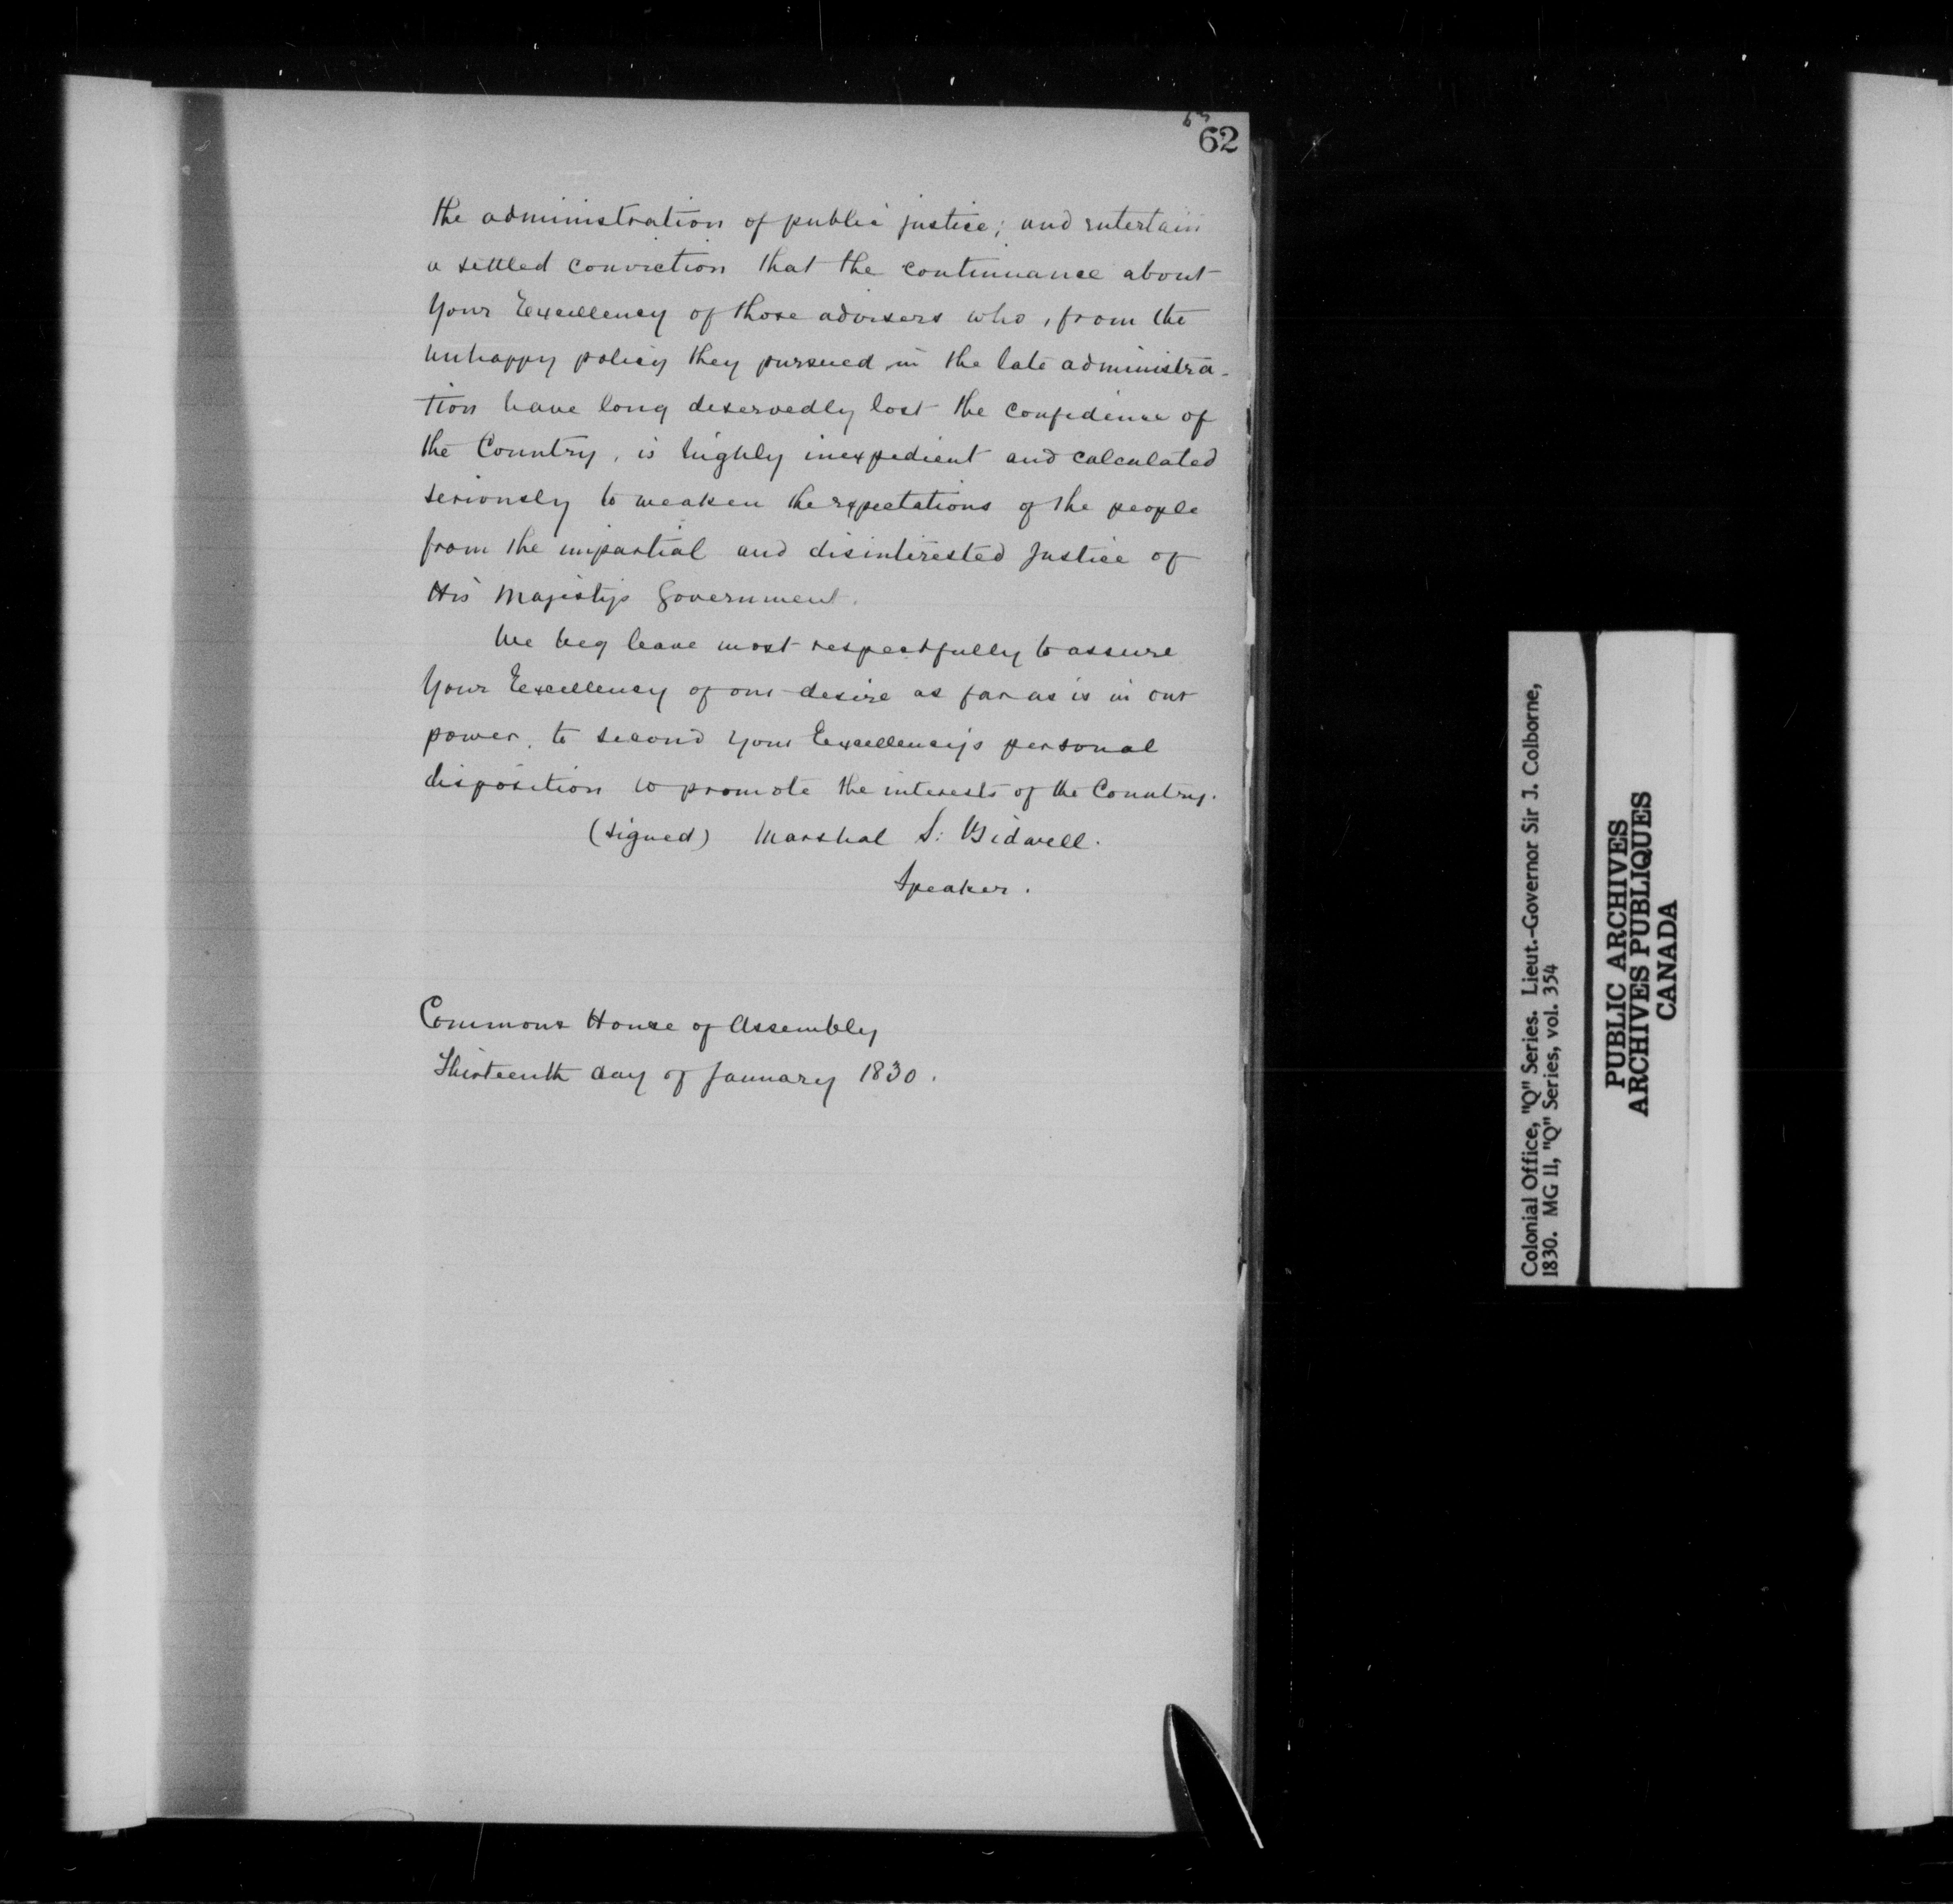 62
the administration of public justice; and entertain
a settled conviction that the continuance about
Your Excellency of those advisers who, from the
unhappy policy they pursued in the late administra-
tion have long deservedly lost the confidence of
the Country, is highly inexpedient and calculated
seriously to weaken the expectations of the people
from the impartial and disinterested justice of
His Majesty's Government.
We beg leave most respectfully to assure
Your Excellency of our desire as far as is in our
power, to second your Excellency's personal
disposition to promote the interests of the Country.
(signed) Marshal S. Bidwell.
Speaker.
Commons House of Assembly
Thirteenth day of January 1830.
Colonial Office, "Q" Series. Lieut.-Governor Sir J. Colborne,
1830. MG 11, "Q" Series, vol. 354
PUBLIC ARCHIVES
ARCHIVES PUBLIQUES
CANADA